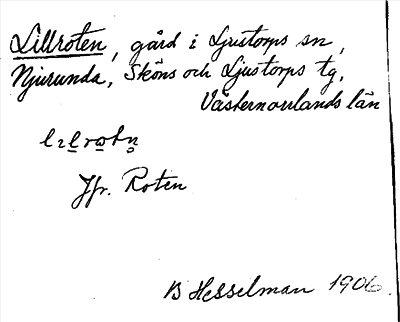 Lillroten, gård i Ljustorps sn,
Njurunda, Sköns och Ljustorps tg,
Västernorrlands län
Jfr. Roten
B Hesselman 1906.